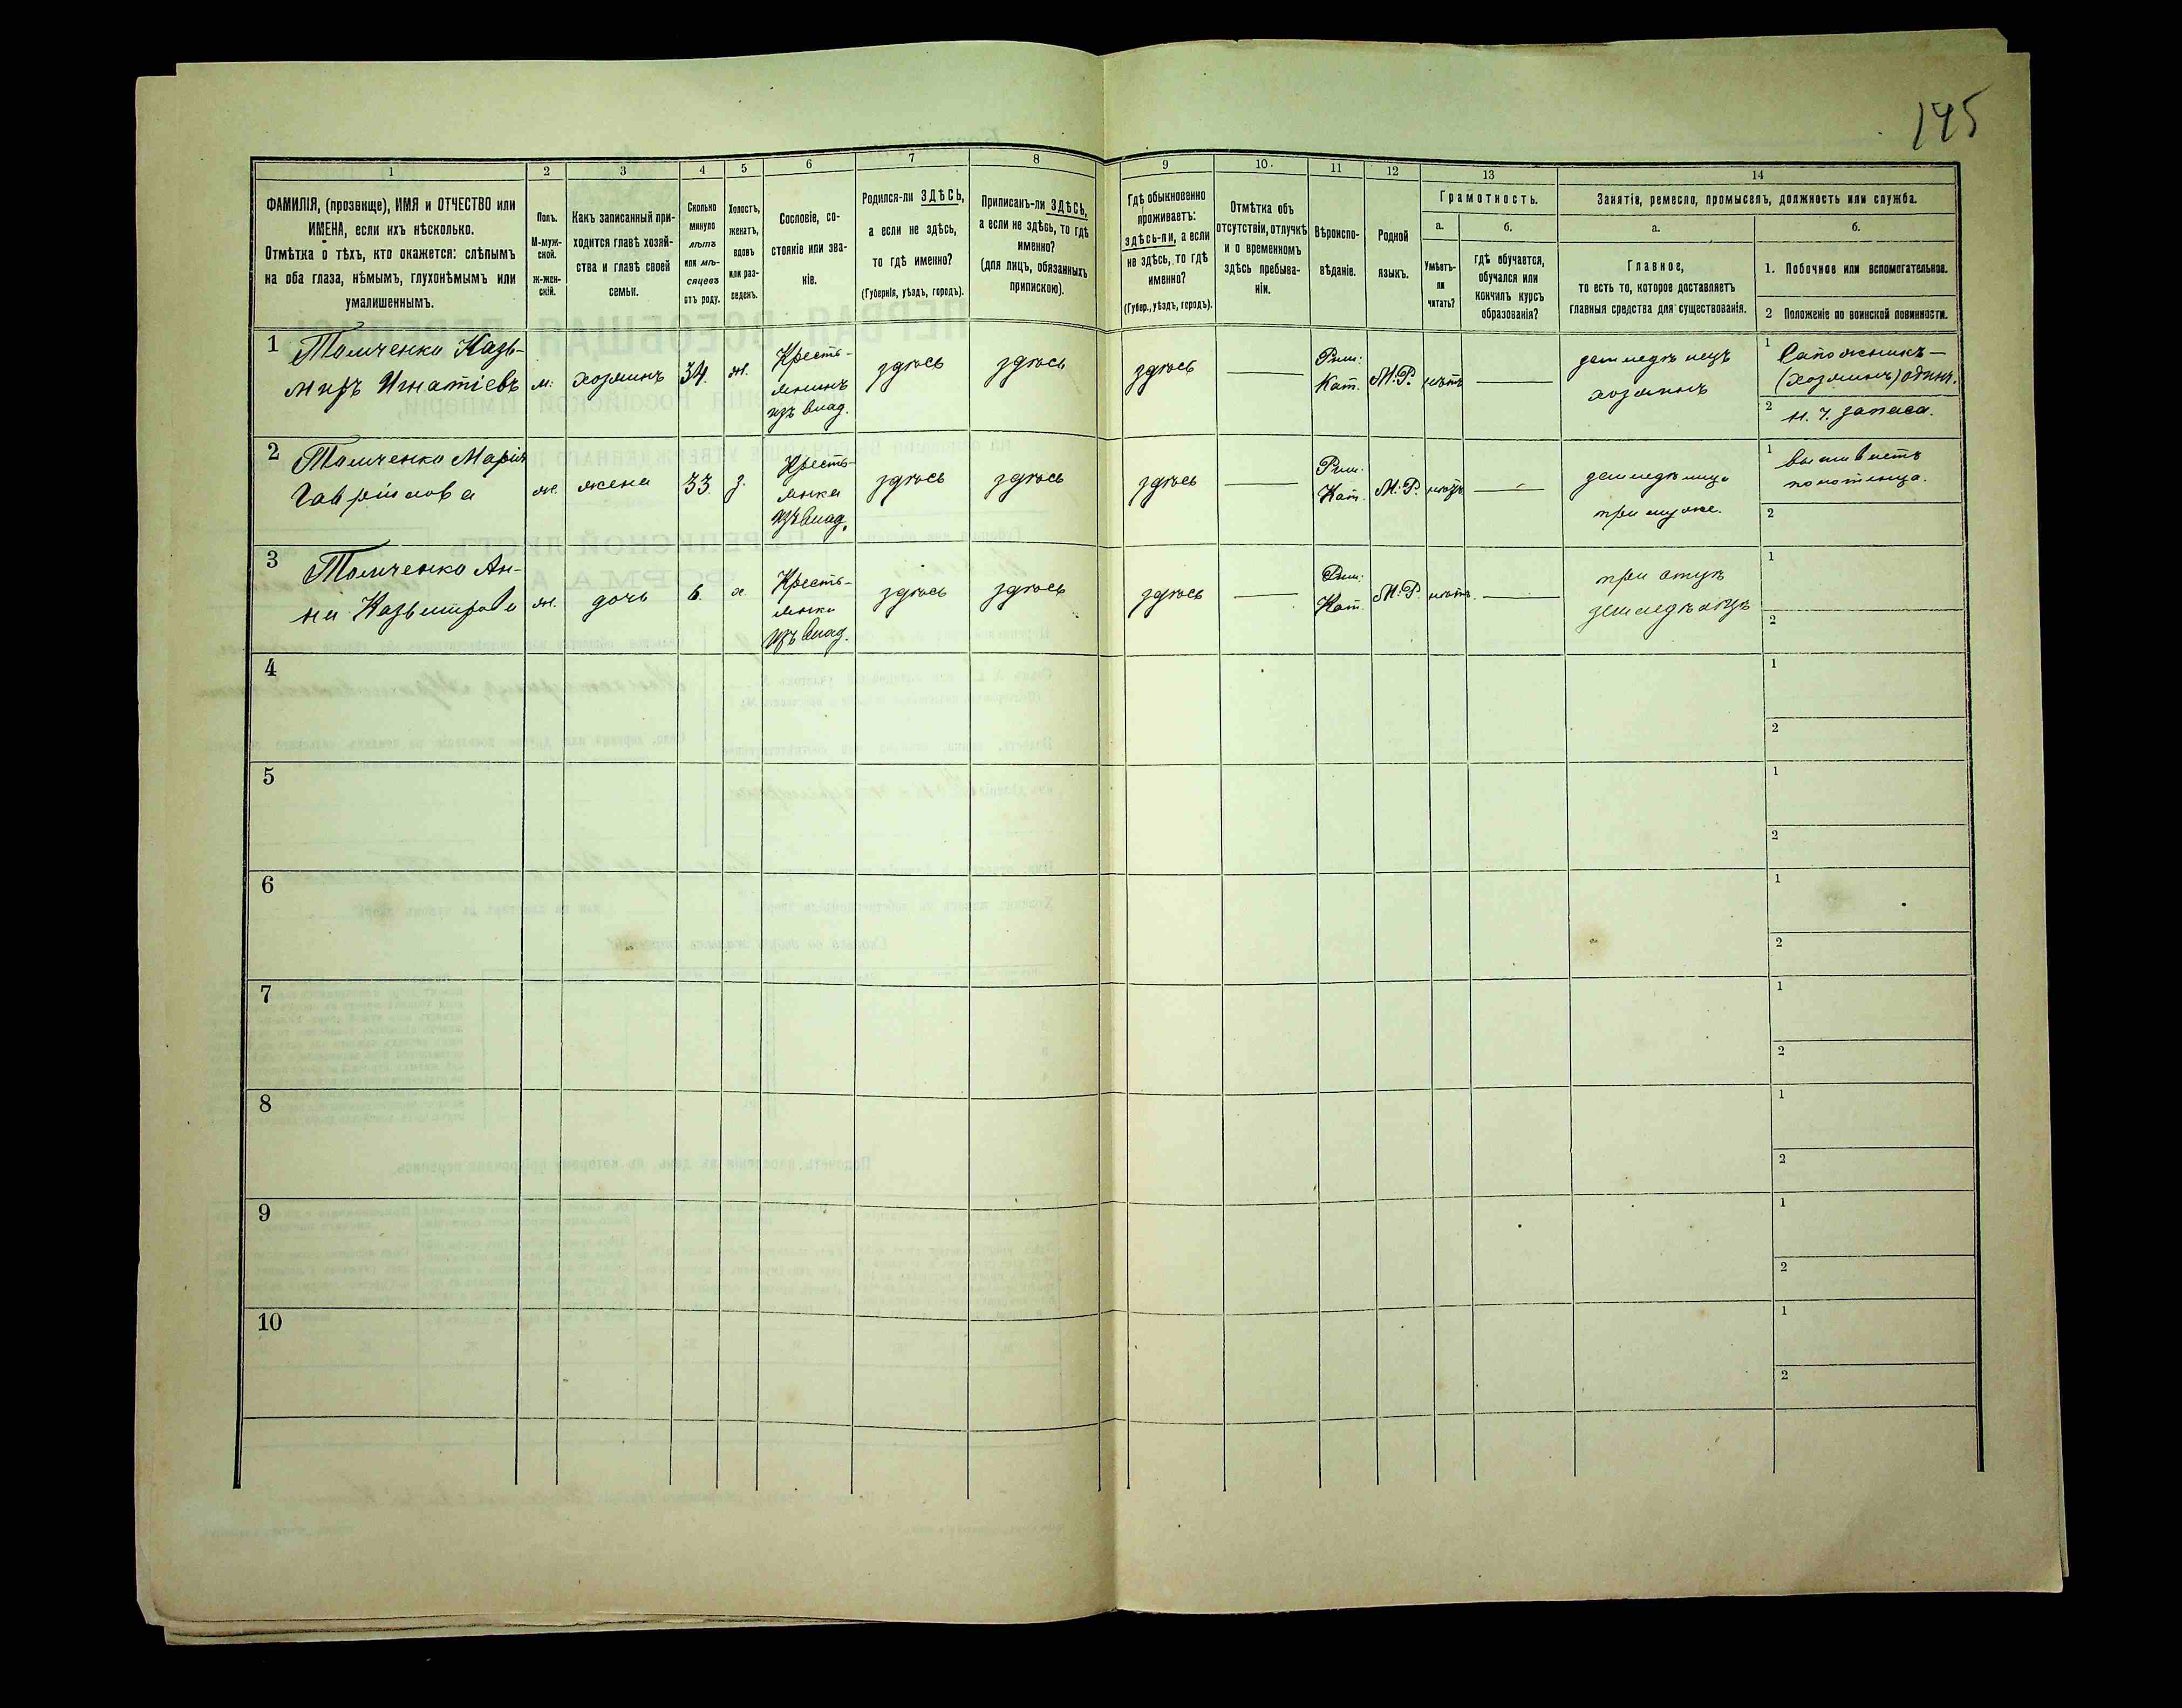 145
1
2
3
4
5
6
7
8
9
10.
11
12
13
14
ФАМИЛІЯ, (прозвище), ИМЯ и ОТЧЕСТВО или
ИМЕНА, если ихъ нѣсколько.
Отмѣтка о тѣхъ, кто окажется: слѣпымъ
на оба глаза, нѣмымъ, глухонѣмымъ или
умалишеннымъ.
Полъ.
М-муж-
ской.
ж-жен-
скій.
Какъ записанный при-
ходится главѣ хозяй-
ства и главѣ своей
семьи.
Сколько
минуло
лѣтъ
или мѣ-
сяцевъ
отъ роду.
Холостъ,
женатъ,
вдовъ
или раз-
веденъ.
Сословіе, со-
стояніе или зва-
ніе.
Родился-ли ЗДѢСЬ,
а если не здѣсь,
то гдѣ именно?
(Губернія, уѣздъ, городъ).
Приписанъ-ли ЗДѢСЬ,
а если не здѣсь, то гдѣ
именно?
(для лицъ, обязанныхъ
припискою).
Гдѣ обыкновенно
проживаетъ:
здѣсь-ли, а если
не здѣсь, то гдѣ
именно?
(Губер., уѣздъ, городъ).
Отмѣтка объ
отсутствіи, отлучкѣ
и о временномъ
здѣсь пребыва-
ніи.
Вѣроиспо-
вѣданіе.
Родной
языкъ.
Грамотность.
а.
Умѣетъ-
ли
читать?
б.
гдѣ обучается,
обучался или
кончилъ курсъ
образованія?
Занятіе, ремесло, промыселъ, должность или служба.
а.
Главное,
то есть то, которое доставляетъ
главныя средства для существованія.
б.
1. Побочное или вспомогательное.
2 Положеніе по воинской повинности.
1
Томченко Казь-
миръ Игнатіевъ
м.
хозяинъ
34.
ж.
Кресть-
янинъ
изъ влад.
здѣсь
здѣсь
здѣсь
Рим:
Кат.
М.Р.
нѣтъ
земледѣлецъ
хозяинъ
1
Сапожникъ —
(хозяинъ) один.
2
н. ч. запаса.
2
Томченко Марія
Гаврилова
ж.
жена
33
з.
Кресть-
янка
изъ влад.
здѣсь
здѣсь
здѣсь
Рим:
Кат.
М.Р.
нѣтъ
при мужѣ.
1
2
3
Томченко Ан-
на Казьмирова
ж.
дочь
6.
д.
Кресть-
янка
изъ влад.
здѣсь
здѣсь
здѣсь
Рим:
Кат.
М.Р.
нѣтъ.
при отцѣ
1
2
4
1
2
5
1
2
6
1
2
7
1
2
8
1
2
9
1
2
10
1
2